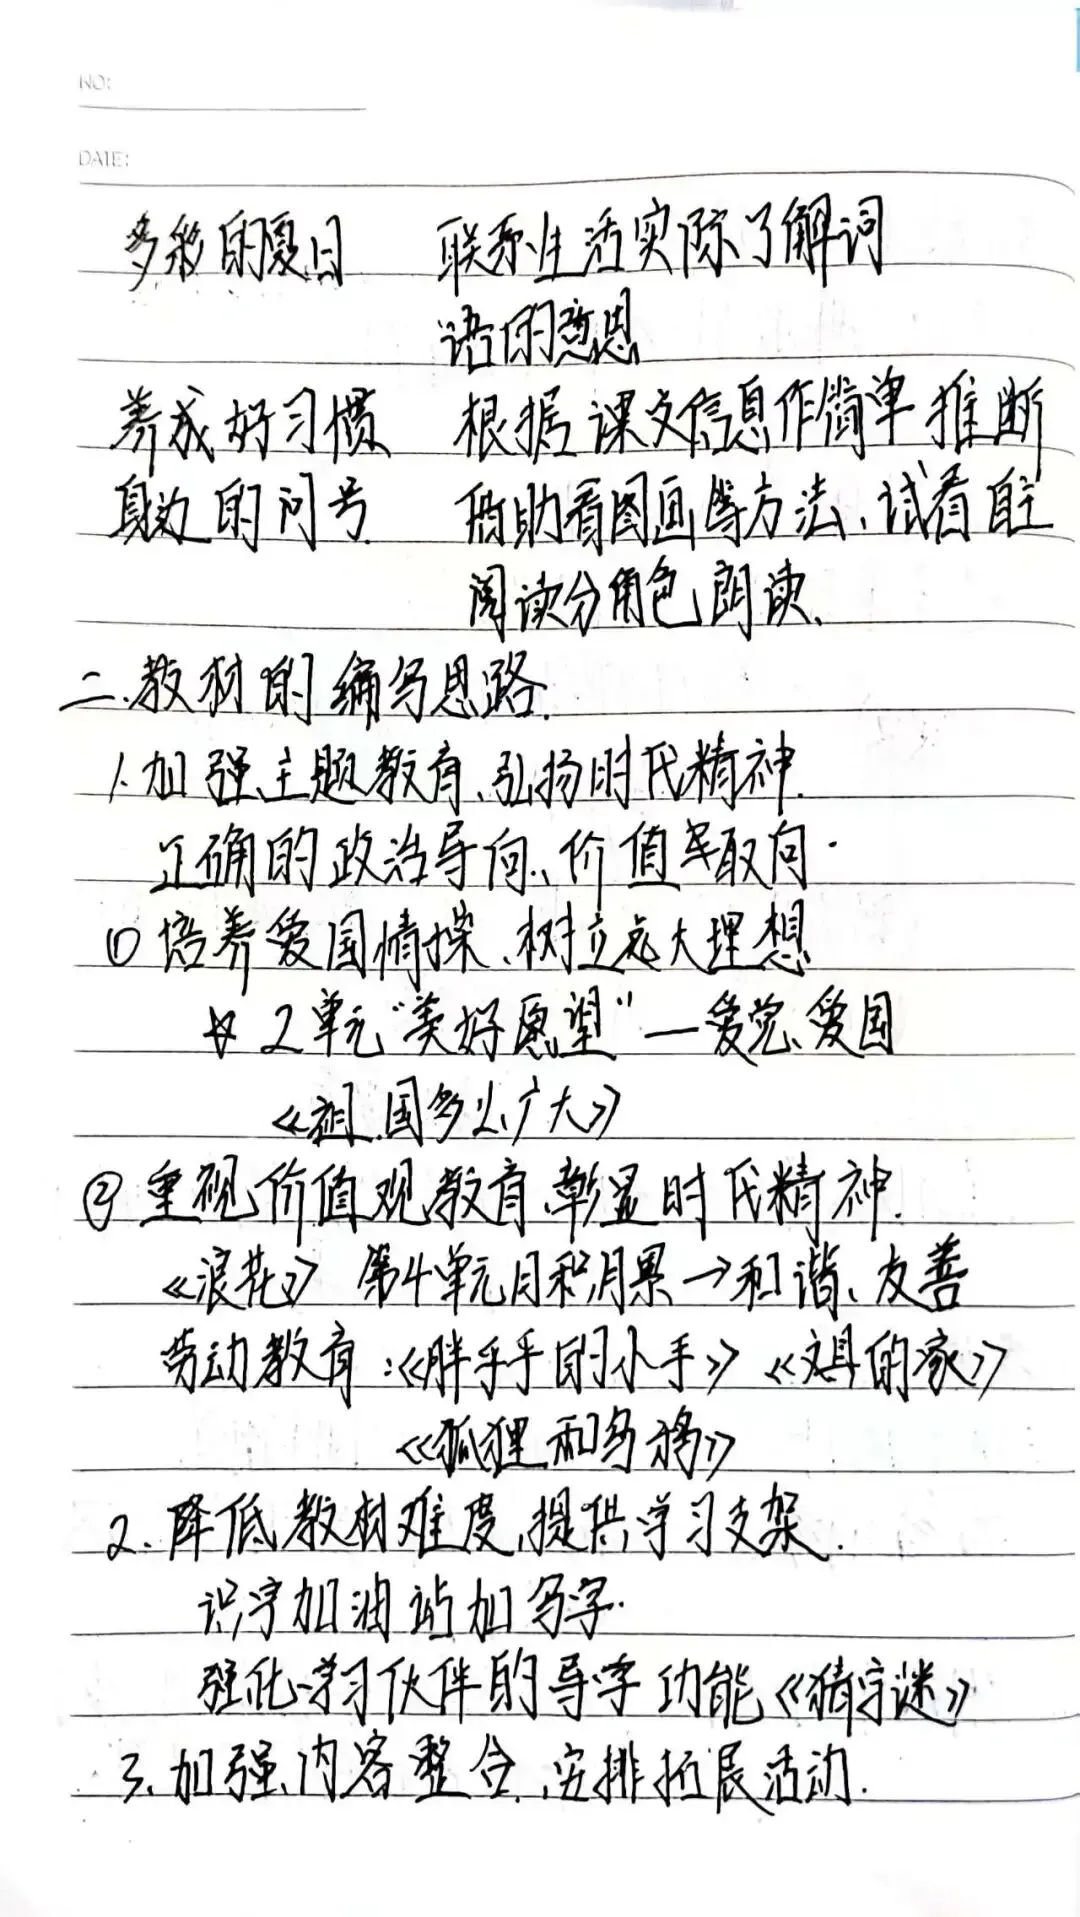 NO:
DATE:
多彩的夏日 联系生活实际了解词
语的意思
养成好习惯 根据课文信息作简单推断
身边的问号 借助看图画等方法、试着自主
阅读分角色朗读、
二、教材的编写思路.
1、加强主题教育、弘扬时代精神.
正确的政治导向、价值取向.
① 培养爱国情操、树立远大理想
☆ 2单元“美好愿望”—爱党、爱国
《祖国多么广大》
② 重视价值观教育、彰显时代精神.
《浪花》 第4单元日积月累→和谐、友善
劳动教育:《胖乎乎的小手》《文具的家》
《狐狸和乌鸦》
2、降低教材难度、提供学习支架.
识字加油站加写字.
强化学习伙伴的导学功能《猜字谜》
3、加强内容整合、安排拓展活动.